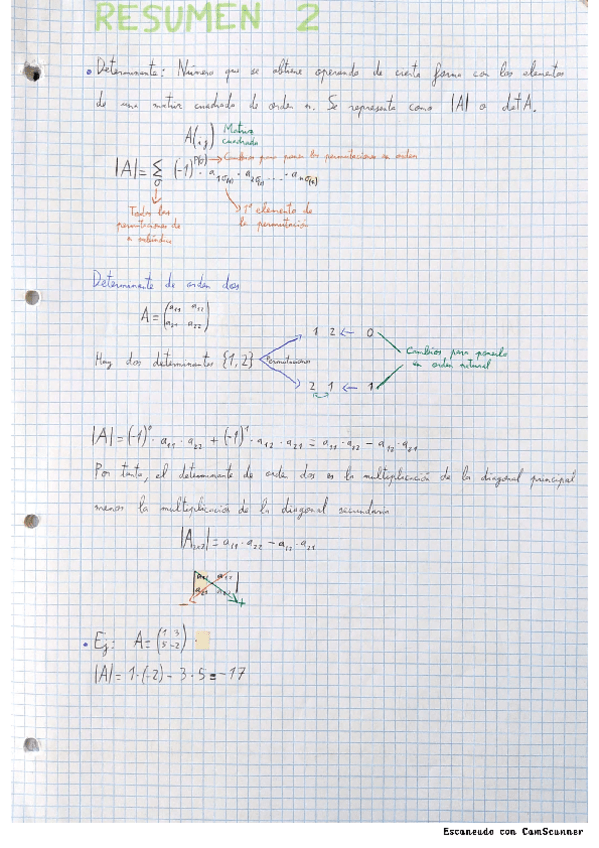 RESUMEN 2
• Determinante: Número que se obtiene operando de cierta forma con los elementos
de una matriz cuadrada de orden n. Se representa como |A| o det A.
A(i,j) Matriz cuadrada
|A| = Σσ (-1)^P(σ) · a1σ(1) · a2σ(2) · ... · anσ(n)
→ Cambios para poner las permutaciones en orden
Todas las
permutaciones de
n subíndice
1º elemento de
la permutación
Determinante de orden dos
A = (a11 a12
a21 a22)
1 2 ← 0
Hay dos determinantes {1,2} Permutaciones
Cambios para ponerlo
en orden natural
2 1 ← 1
|A| = (-1)^0 · a11 · a22 + (-1)^1 · a12 · a21 = a11 · a22 - a12 · a21
Por tanto, el determinante de orden dos es la multiplicación de la diagonal principal
menos la multiplicación de la diagonal secundaria
|A2x2| = a11 · a22 - a12 · a21
|a11 a12
a21 a22|
- +
• Ej: A = (1 3
5 -2)
|A| = 1·(-2) - 3·5 = -17
Escaneado con CamScanner